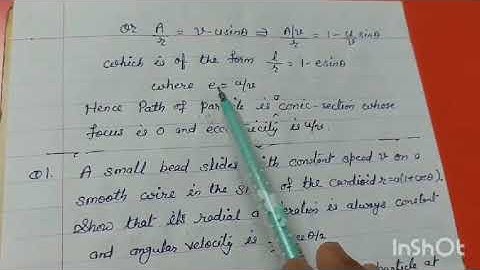 Or A/r = v - usinθ ⇒ A/v/r = 1 - u/v sinθ
which is of the form l/r = 1 - e sinθ
where e = u/v
Hence Path of particle is a conic-section whose
focus is O and eccentricity is u/v.
Q1. A small bead slides with constant speed v on a
smooth wire in the of the cardioid r=a(1+cosθ).
Show that its radial acceleration is always constant
and angular velocity is θ/2
particle at
InShOt